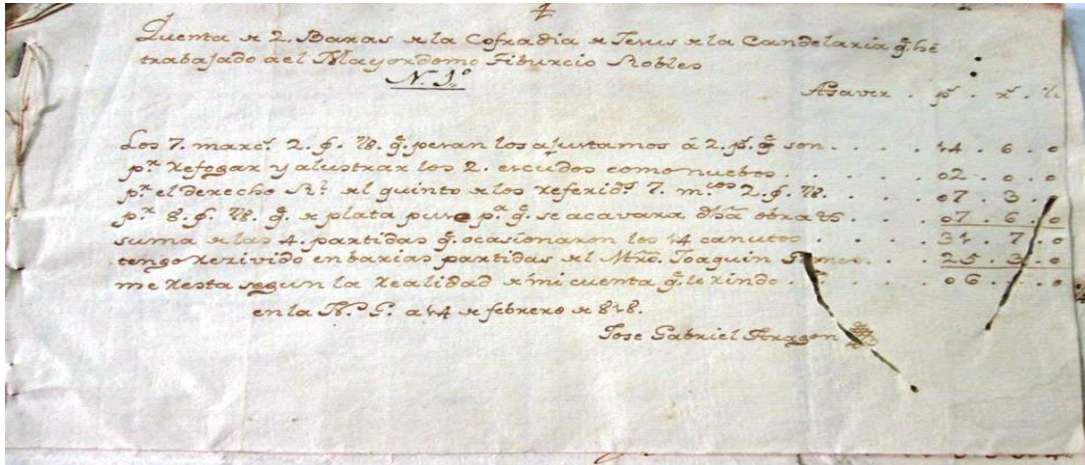 Quenta de 2. Baras de la Cofradia de Jesus de la Candelaria q.e hé
trabajado a el Mayordomo Tiburcio Robles
N. 1º
Asaver . p.s . r.s .
Los 7. marc.s 2. o. 7/8. q.e pesan los ajustamos á 2. p.s q.e son . . . . 14 . 6 . 0
p.r Refogar y alustrar los 2. escudos como nuebos . . . . . 02 . 0 . 0
p.r el derecho R.l del quinto de los referid.s 7. m.cos 2. o. 7/8. . . . 07 . 3 .
p.r 8. o. 7/8. q.e de plata pura p.a q.e se acavara dha obra . . . 07 . 6 . 0
suma de las 4. partidas q.e ocasionaron los 14 canutos . . . . 31 . 7 . 0
tengo rezivido en barias partidas del Mtro. Joaquin . . 25 . 3 . 0
me resta segun la realidad de mi cuenta q.e le rindo . . . . 06 . . 0
en la N. G. a 14 de febrero de 818.
Jose Gabriel Aragon